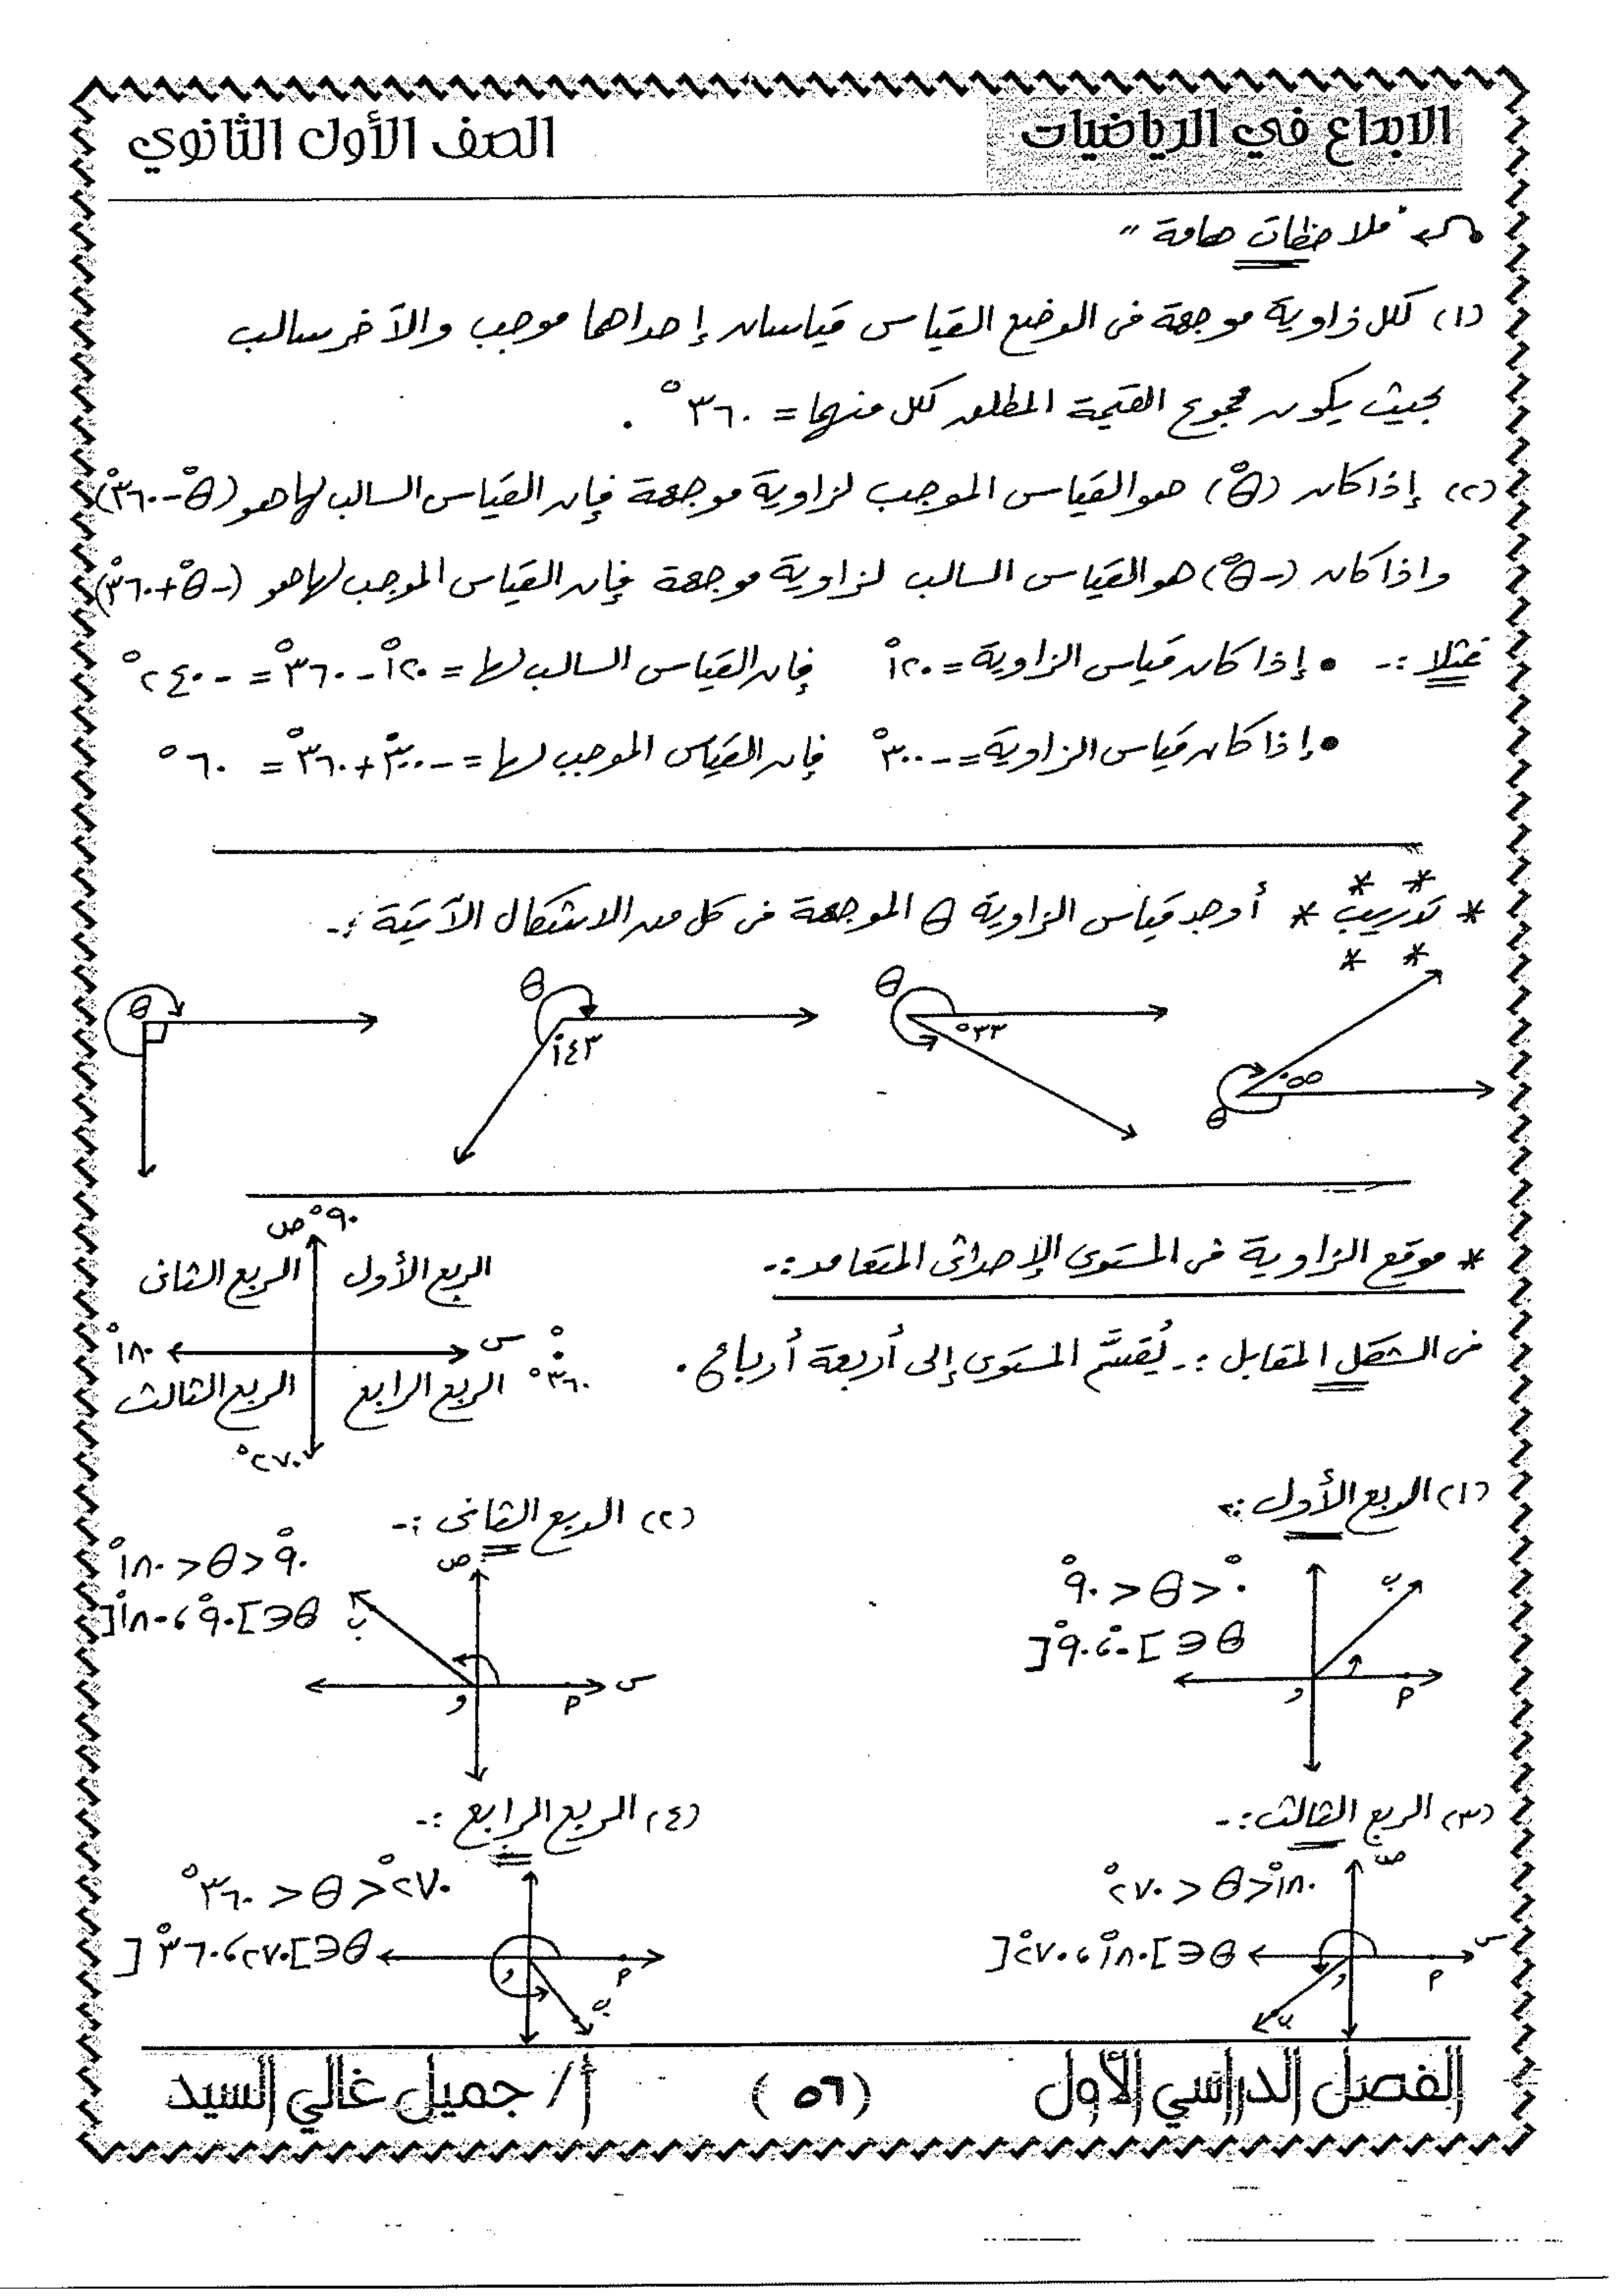 الابداع في الرياضيات
الصف الأول الثانوي
"ملاحظات هامة"
(١) لكل زاوية موجهة فى الوضع القياسى قياسان إحداهما موجب والآخر سالب
بحيث يكون مجموع القيمة المطلقه لكل منهما = ٣٦٠° .
(٢) إذا كان (θ°) هو القياس الموجب لزاوية موجهة فإن القياس السالب لها هو (θ° - ٣٦٠°)
واذا كان (-θ°) هو القياس السالب لزاوية موجهة فإن القياس الموجب لها هو (-θ° + ٣٦٠°)
فمثلا :- • إذا كان قياس الزاوية = ١٢٠° فإن القياس السالب لها = ١٢٠° - ٣٦٠° = - ٢٤٠°
• إذا كان قياس الزاوية = - ٣٠٠° فإن القياس الموجب لها = - ٣٠٠° + ٣٦٠° = ٦٠°
* تدريب * أوجد قياس الزاوية θ الموجهة فى كل من الاشكال الآتية :-
θ ٥٥°
θ ٣٣°
θ ١٤٣°
θ
* موقع الزاوية فى المستوى الإحداثى المتعامد :-
فى الشكل المقابل :- يُقسَّم المستوى إلى أربعة أرباع .
ص ٩٠°
الربع الأول الربع الثانى
س ٠° ١٨٠°
٣٦٠° الربع الرابع الربع الثالث
٢٧٠°
(١) الربع الأول :-
٠° < θ < ٩٠°
θ ∈ ]٠°، ٩٠°[
ب
و
م
(٢) الربع الثانى :-
٩٠° < θ < ١٨٠°
θ ∈ ]٩٠°، ١٨٠°[
ص
ب
س
و
م
(٣) الربع الثالث :-
١٨٠° < θ < ٢٧٠°
θ ∈ ]١٨٠°، ٢٧٠°[
ص
س
و
م
ب
(٤) الربع الرابع :-
٢٧٠° < θ < ٣٦٠°
θ ∈ ]٢٧٠، ٣٦٠°[
و
م
ب
الفصل الدراسي الأول
(٥٦)
أ / جميل غالي السيد